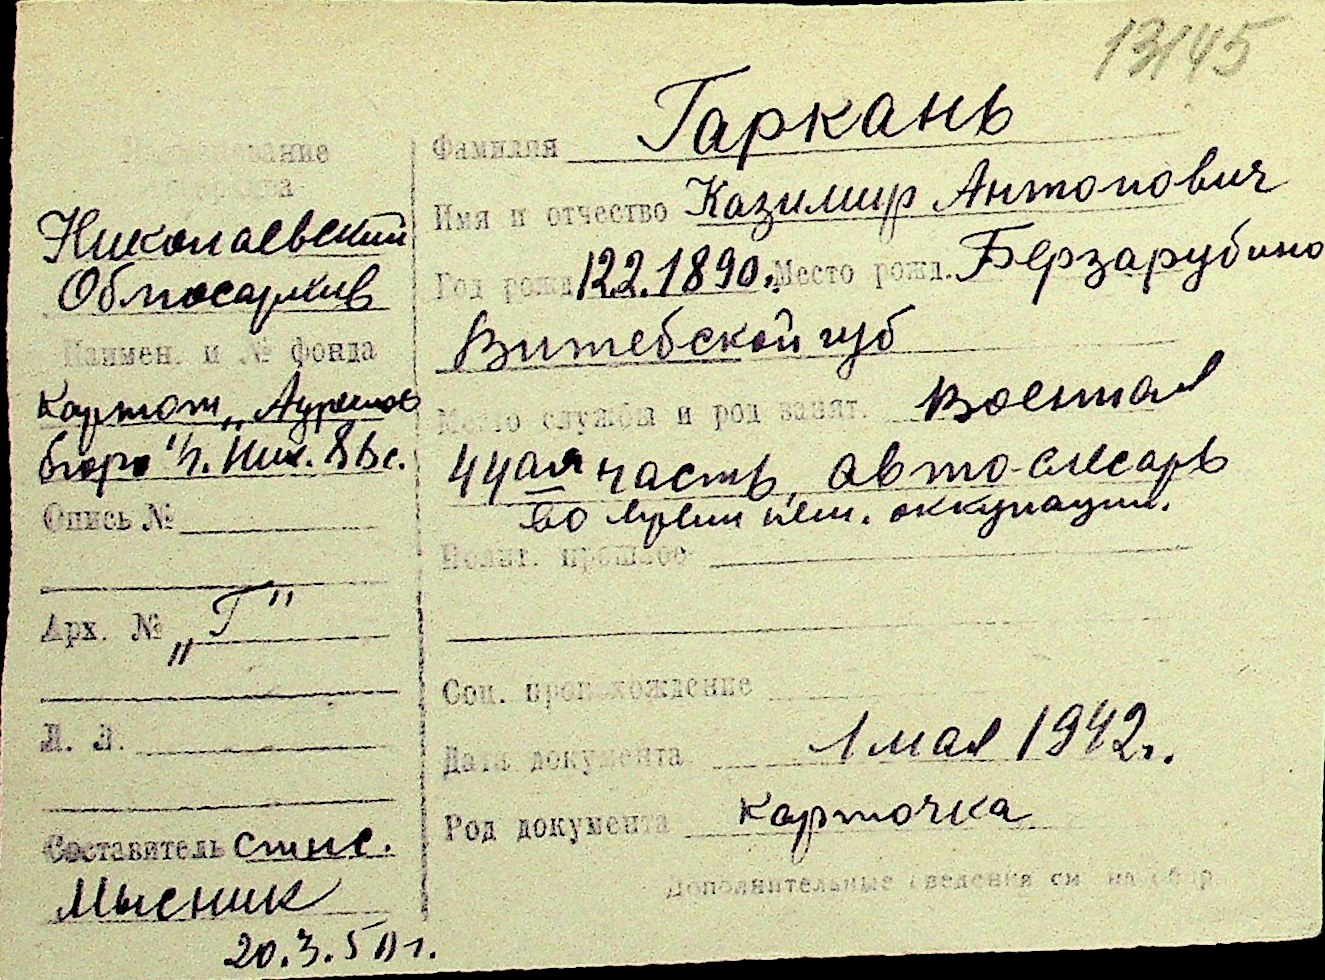 13145
Наименование
архива
Николаевский
Облгосархив
Наимен. и № фонда
Картот. „Адресное
бюро" г. Ник.
Опись №
Арх. № „Г"
Л. Л.
Составитель стнс.
Мысник
20.3.50 г.
Фамилия Гаркань
Имя и отчество Казимир Антонович
Год рожд. 12.2.1890. Место рожд. Берзарубино
Витебской губ
Место службы и род занят. Военная
44ая часть, автослесарь
во время нем. оккупации.
Полит. прошлое
Соц. происхождение
Дата документа 1 мая 1942г.
Род документа карточка
Дополнительные сведения см. на обор.